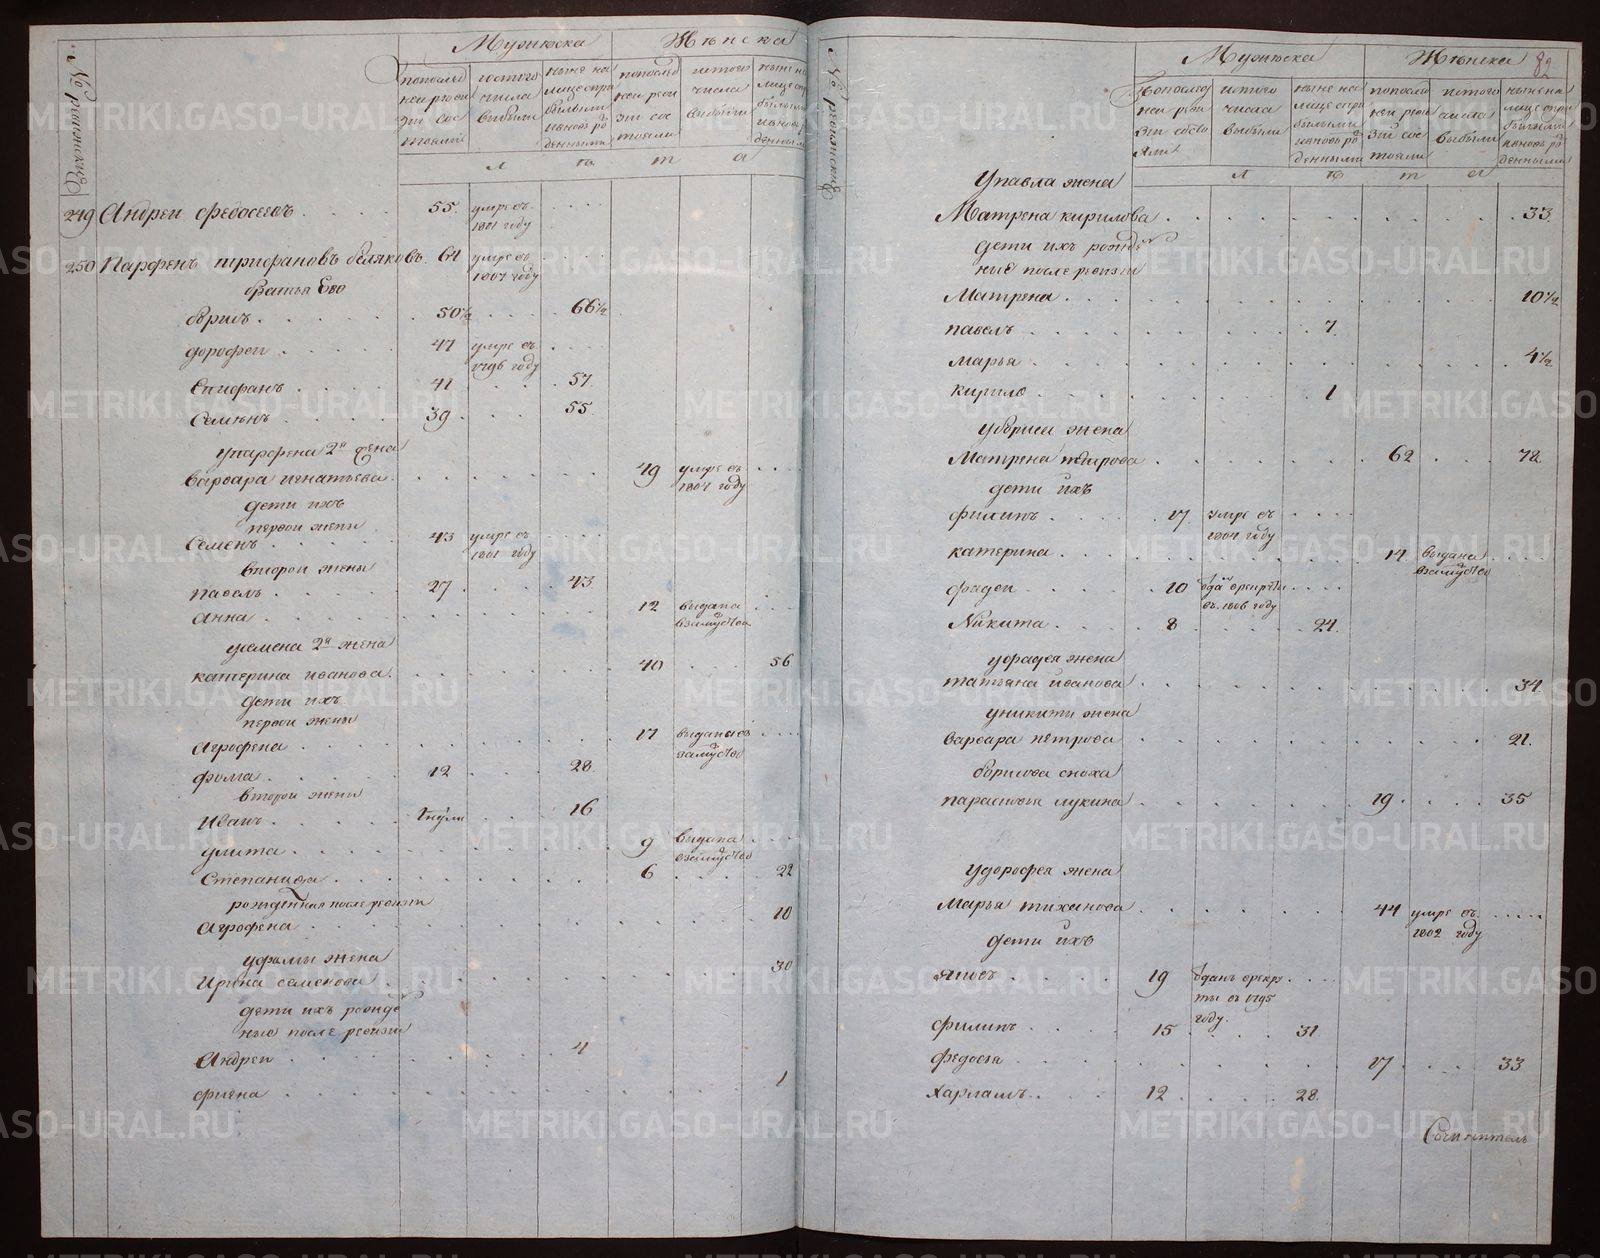 № ревижские
Мужеска
Женска
по последней ревизии состояли
из того числа выбыли
ныне на лице с прибылыми и вновь рожденными
по последней ревизии состояли
из того числа выбыли
ныне на лице с прибылыми и вновь рожденными
л ѣ т а
249 Андреи Федосеевъ 55. умре въ 1801 году
250 Парфенъ трифановъ беляковъ 61 умре въ 1807 году
братья Ево
борисъ 50½ 66½
дорофеи 47 умре въ 1796 году
Епифанъ 41 57.
Семѣнъ 39 55
упарфена 2я жена
варвара игнатьева 49 умре въ 1804 году
дети ихъ
первои жены
Семенъ 43 умре въ 1801 году
второи жены
павелъ 27 43
анна 12 выдана взамуство
усемена 2я жена
катерина иванова 40 56
дети ихъ
первои жены
агрофена 17 выдана въ замуство
фома 12 28
второи жены
Иванъ 1нули 16
улита 9 выдана взамуство
Степанида 6 22
рожденная после ревизи
агрофена 10
уфомы жена
Ирина семенова 30
дети ихъ рожде
ные после ревизи
Андреи 4
фиена 1
№ ревижские
Мужеска
Женска 82
по последней ревизии состояли
из того числа выбыли
ныне на лице с прибылыми и вновь рожденными
по последней ревизии состояли
из того числа выбыли
ныне на лице с прибылыми и вновь рожденными
л ѣ т а
Упавла жена
Матрена кирилова 33
дети ихъ рожде
ные после ревизи
Матрена 10½
павелъ 7
марья 4½
кирило 1
убориса жена
Матрена 62 78
дети ихъ
филипъ 17 умре въ 1804 году
катерина 14 выдана взамуство
фадеи 10 въ 1806 году
Никита 8 24.
уфадея жена
татьяна иванова 34
уникиты жена
варвара петрова 21.
борисова сноха
парасковья лукина 19 35
удорофея жена
Марья тиханова 44 умре въ 1802 году
дети ихъ
яковъ 19 зданъ врекруты въ 1795 году.
филипъ 15 31
федосья 17 33
Харламъ 12 28
Сочинитель
METRIKI.GASO-URAL.RU